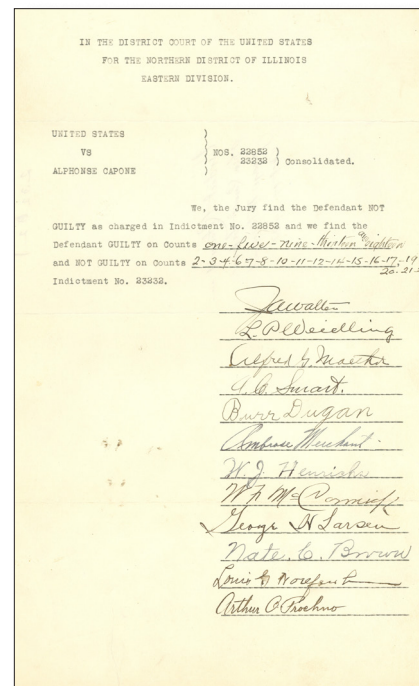 IN THE DISTRICT COURT OF THE UNITED STATES
FOR THE NORTHERN DISTRICT OF ILLINOIS
EASTERN DIVISION.
UNITED STATES )
VS ) NOS. 22852 )
) 23232 ) Consolidated.
ALPHONSE CAPONE )
We, the Jury find the Defendant NOT
GUILTY as charged in Indictment No. 22852 and we find the
Defendant GUILTY on Counts one-five-nine-thirteen & eighteen
and NOT GUILTY on Counts 2-3-4-6-7-8-10-11-12-14-15-16-17-19
20-21-
Indictment No. 23232.
L. P. Weidling
Alfred G. Maether
A. C. Smart.
Burr Dugan
Ambrose Merchant.
W. J. Henricks
W. F. McCormick
George H Larsen
Nate. C. Brown
Louis G
Arthur O. Prochno